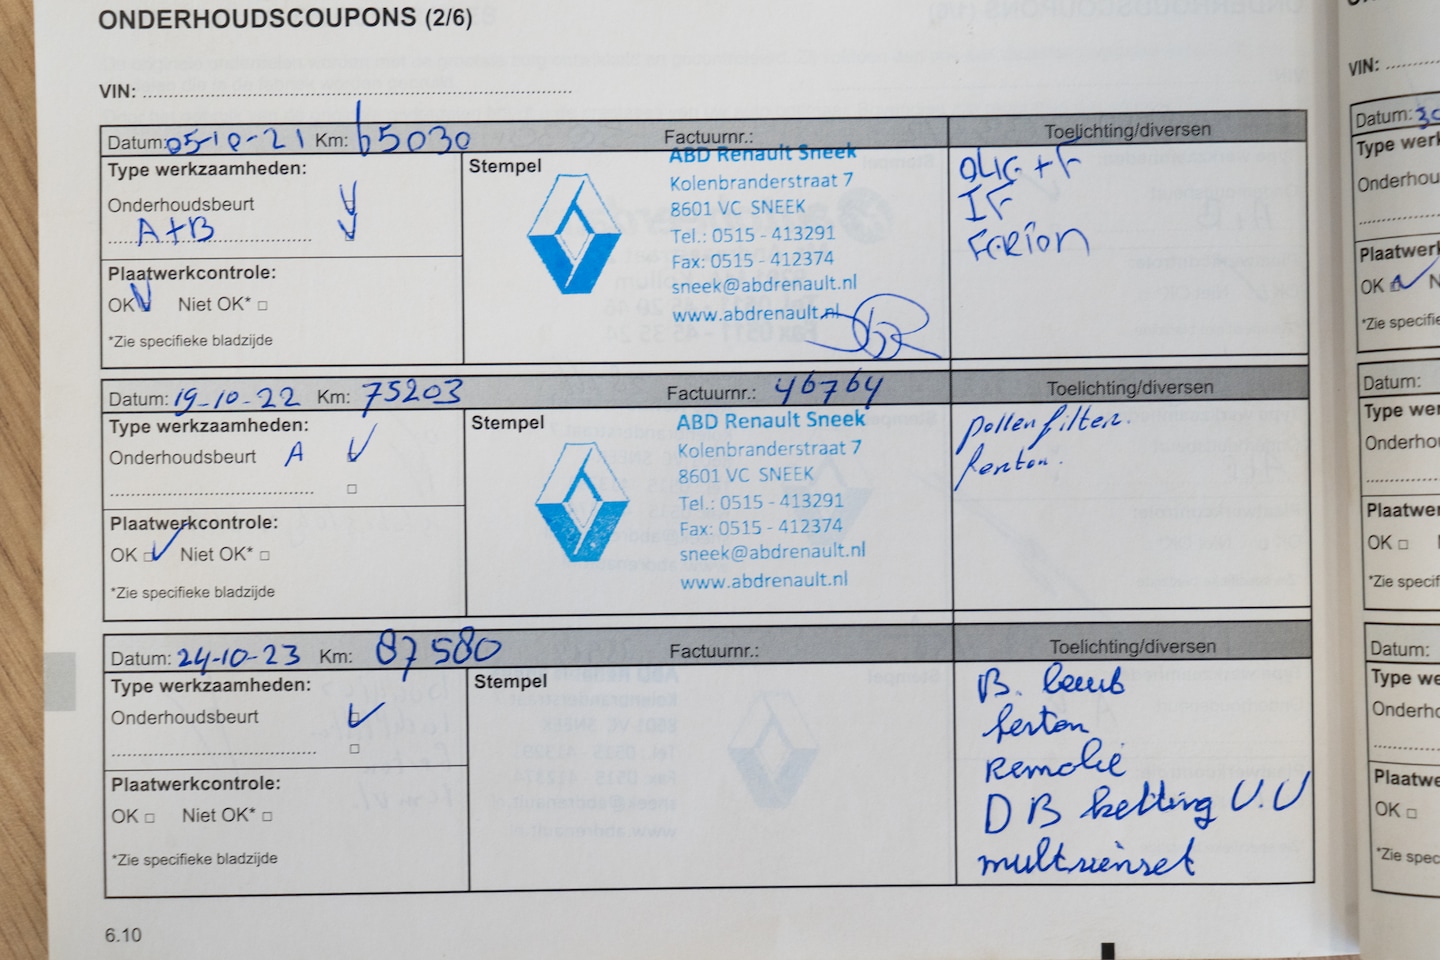 ONDERHOUDSCOUPONS (2/6)
VIN:
Datum: 05-10-21 Km: 65030 Factuurnr.: Toelichting/diversen
Type werkzaamheden:
Onderhoudsbeurt
A+B
Plaatwerkcontrole:
OK Niet OK*
*Zie specifieke bladzijde
Stempel
ABD Renault Sneek
Kolenbranderstraat 7
8601 VC SNEEK
Tel.: 0515 - 413291
Fax: 0515 - 412374
sneek@abdrenault.nl
www.abdrenault.nl
OLIE + F
IF
FERION
Datum: 19-10-22 Km: 75203 Factuurnr.: 46764 Toelichting/diversen
Type werkzaamheden:
Onderhoudsbeurt A
Plaatwerkcontrole:
OK Niet OK*
*Zie specifieke bladzijde
Stempel
ABD Renault Sneek
Kolenbranderstraat 7
8601 VC SNEEK
Tel.: 0515 - 413291
Fax: 0515 - 412374
sneek@abdrenault.nl
www.abdrenault.nl
pollenfilter.
Datum: 24-10-23 Km: 87580 Factuurnr.: Toelichting/diversen
Type werkzaamheden:
Onderhoudsbeurt
Plaatwerkcontrole:
OK Niet OK*
*Zie specifieke bladzijde
Stempel
B. beurt
ferton
Remolie
D B ketting V.V
multirienset
6.10
VIN:
Datum: 30
Type werk
Onderhou
Plaatwerk
OK N
*Zie specifie
Datum:
Type wer
Onderho
Plaatwer
OK
*Zie specif
Datum:
Type we
Onderho
Plaatwe
OK
*Zie spec